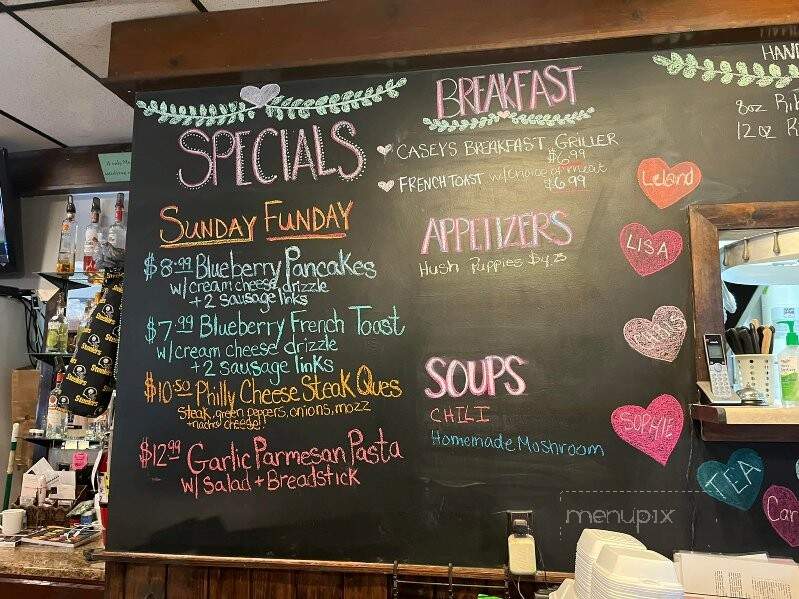 SPECIALS
SUNDAY FUNDAY
$8.99 Blueberry Pancakes
w/cream cheese drizzle
+ 2 sausage links
$7.99 Blueberry French Toast
w/cream cheese drizzle
+ 2 sausage links
$10.50 Philly Cheese Steak Ques
Steak, green peppers, onions, mozz
+nacho cheese!
$12.99 Garlic Parmesan Pasta
w/ Salad + Breadstick
BREAKFAST
CASEYS BREAKFAST GRILLER
$6.99
FRENCH TOAST w/choice of meat
$6.99
APPETIZERS
Hush Puppies $4.25
SOUPS
CHILI
Homemade Moshroom
HAN
8oz Rib
12 oz R
Leland
LISA
SOPHIE
TEA
Car
Steelers
menupix